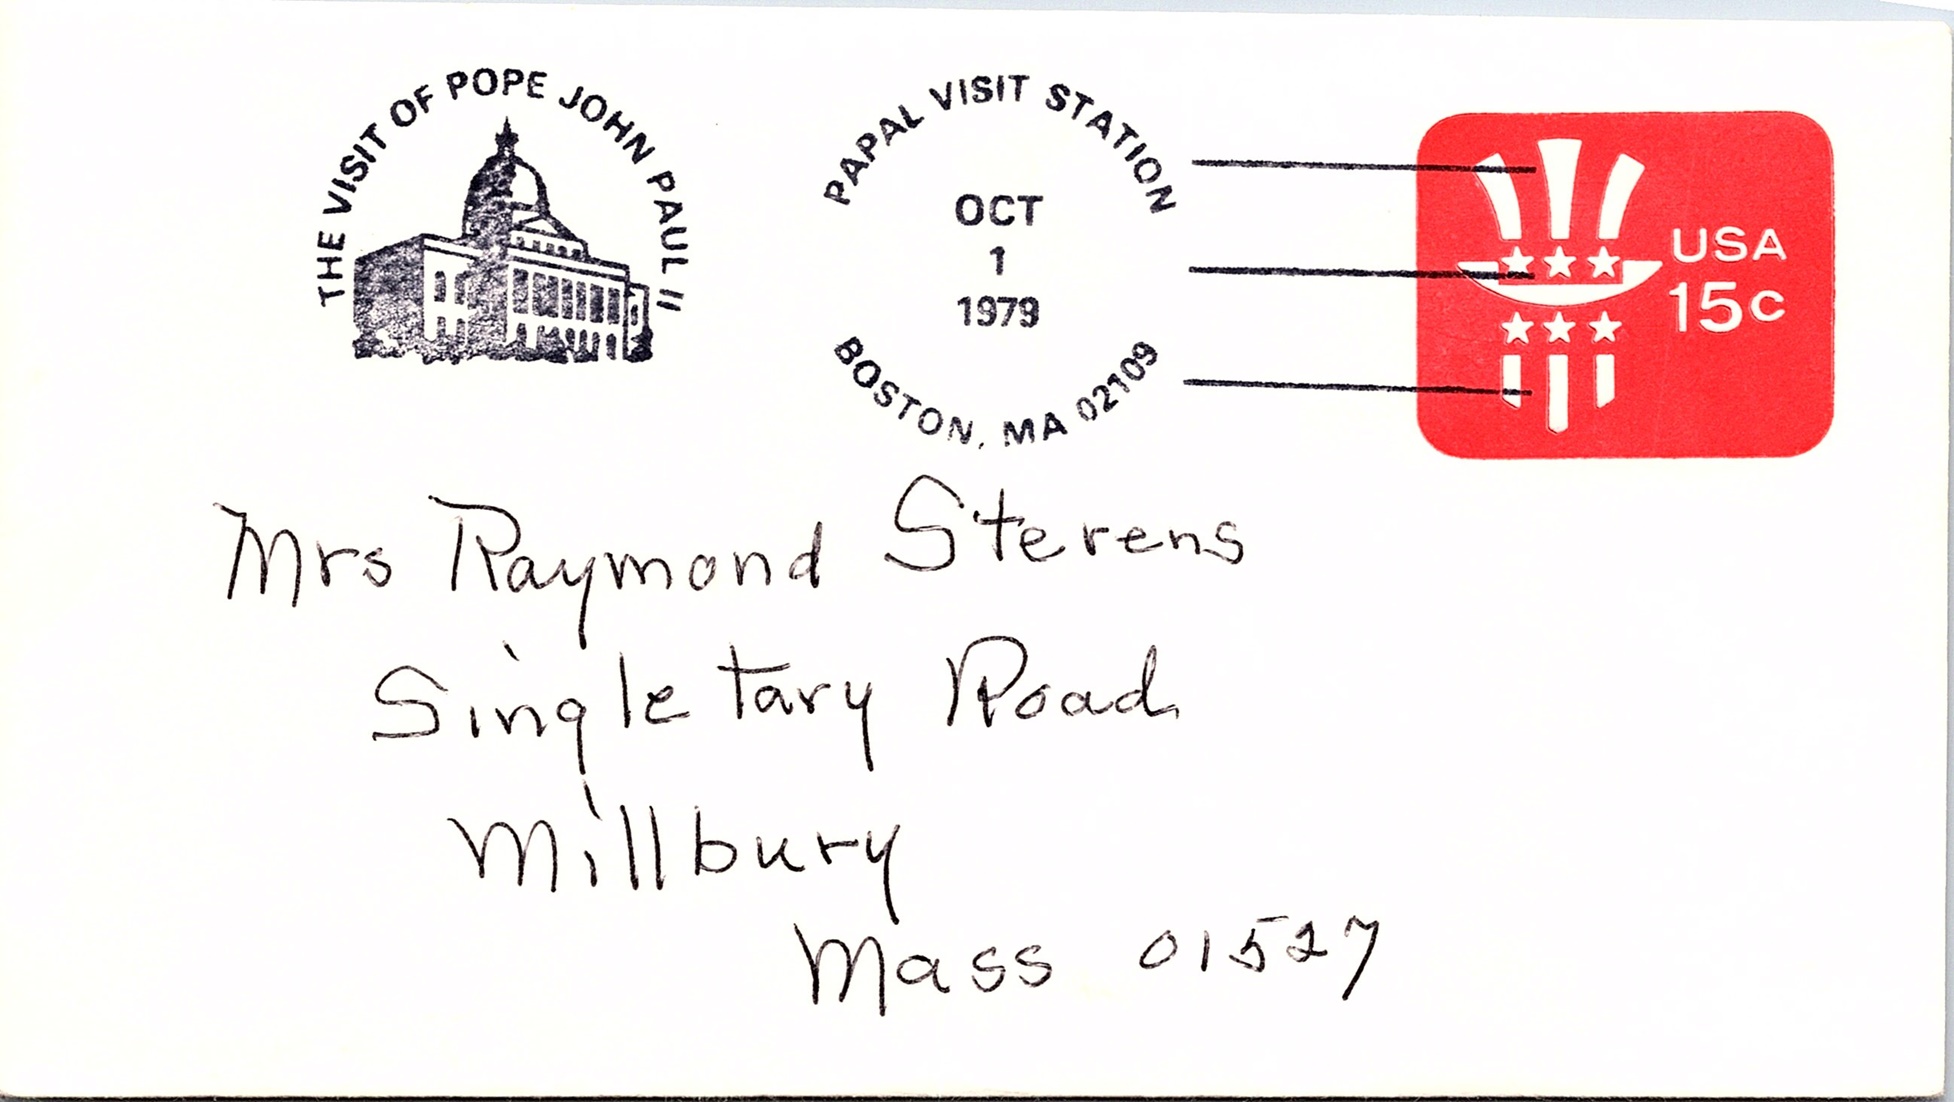 THE VISIT OF POPE JOHN PAUL II
PAPAL VISIT STATION
OCT
1
1979
BOSTON, MA 02109
USA
15c
Mrs Raymond Stevens
Singletary Road
Millbury
Mass 01527